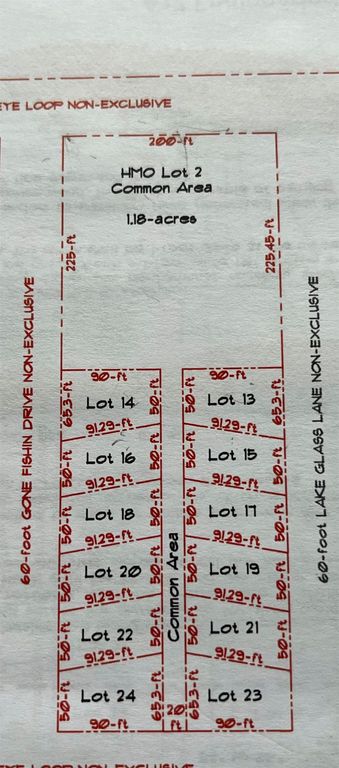 EYE LOOP NON-EXCLUSIVE
200-ft
HMO Lot 2
Common Area
1.18-acres
225-ft
225.45-ft
60-foot GONE FISHIN DRIVE NON-EXCLUSIVE
60-foot LAKE GLASS LANE NON-EXCLUSIVE
90-ft
90-ft
65.3-ft
Lot 14
50-ft
50-ft
Lot 13
65.3-ft
91.29-ft
91.29-ft
50-ft
Lot 16
50-ft
50-ft
Lot 15
50-ft
91.29-ft
91.29-ft
50-ft
Lot 18
50-ft
50-ft
Lot 17
50-ft
91.29-ft
91.29-ft
Common Area
50-ft
Lot 20
50-ft
50-ft
Lot 19
50-ft
91.29-ft
91.29-ft
50-ft
Lot 22
50-ft
50-ft
Lot 21
50-ft
91.29-ft
91.29-ft
50-ft
Lot 24
65.3-ft
20
ft
65.3-ft
Lot 23
90-ft
90-ft
EYE LOOP NON-EXCLUSIVE